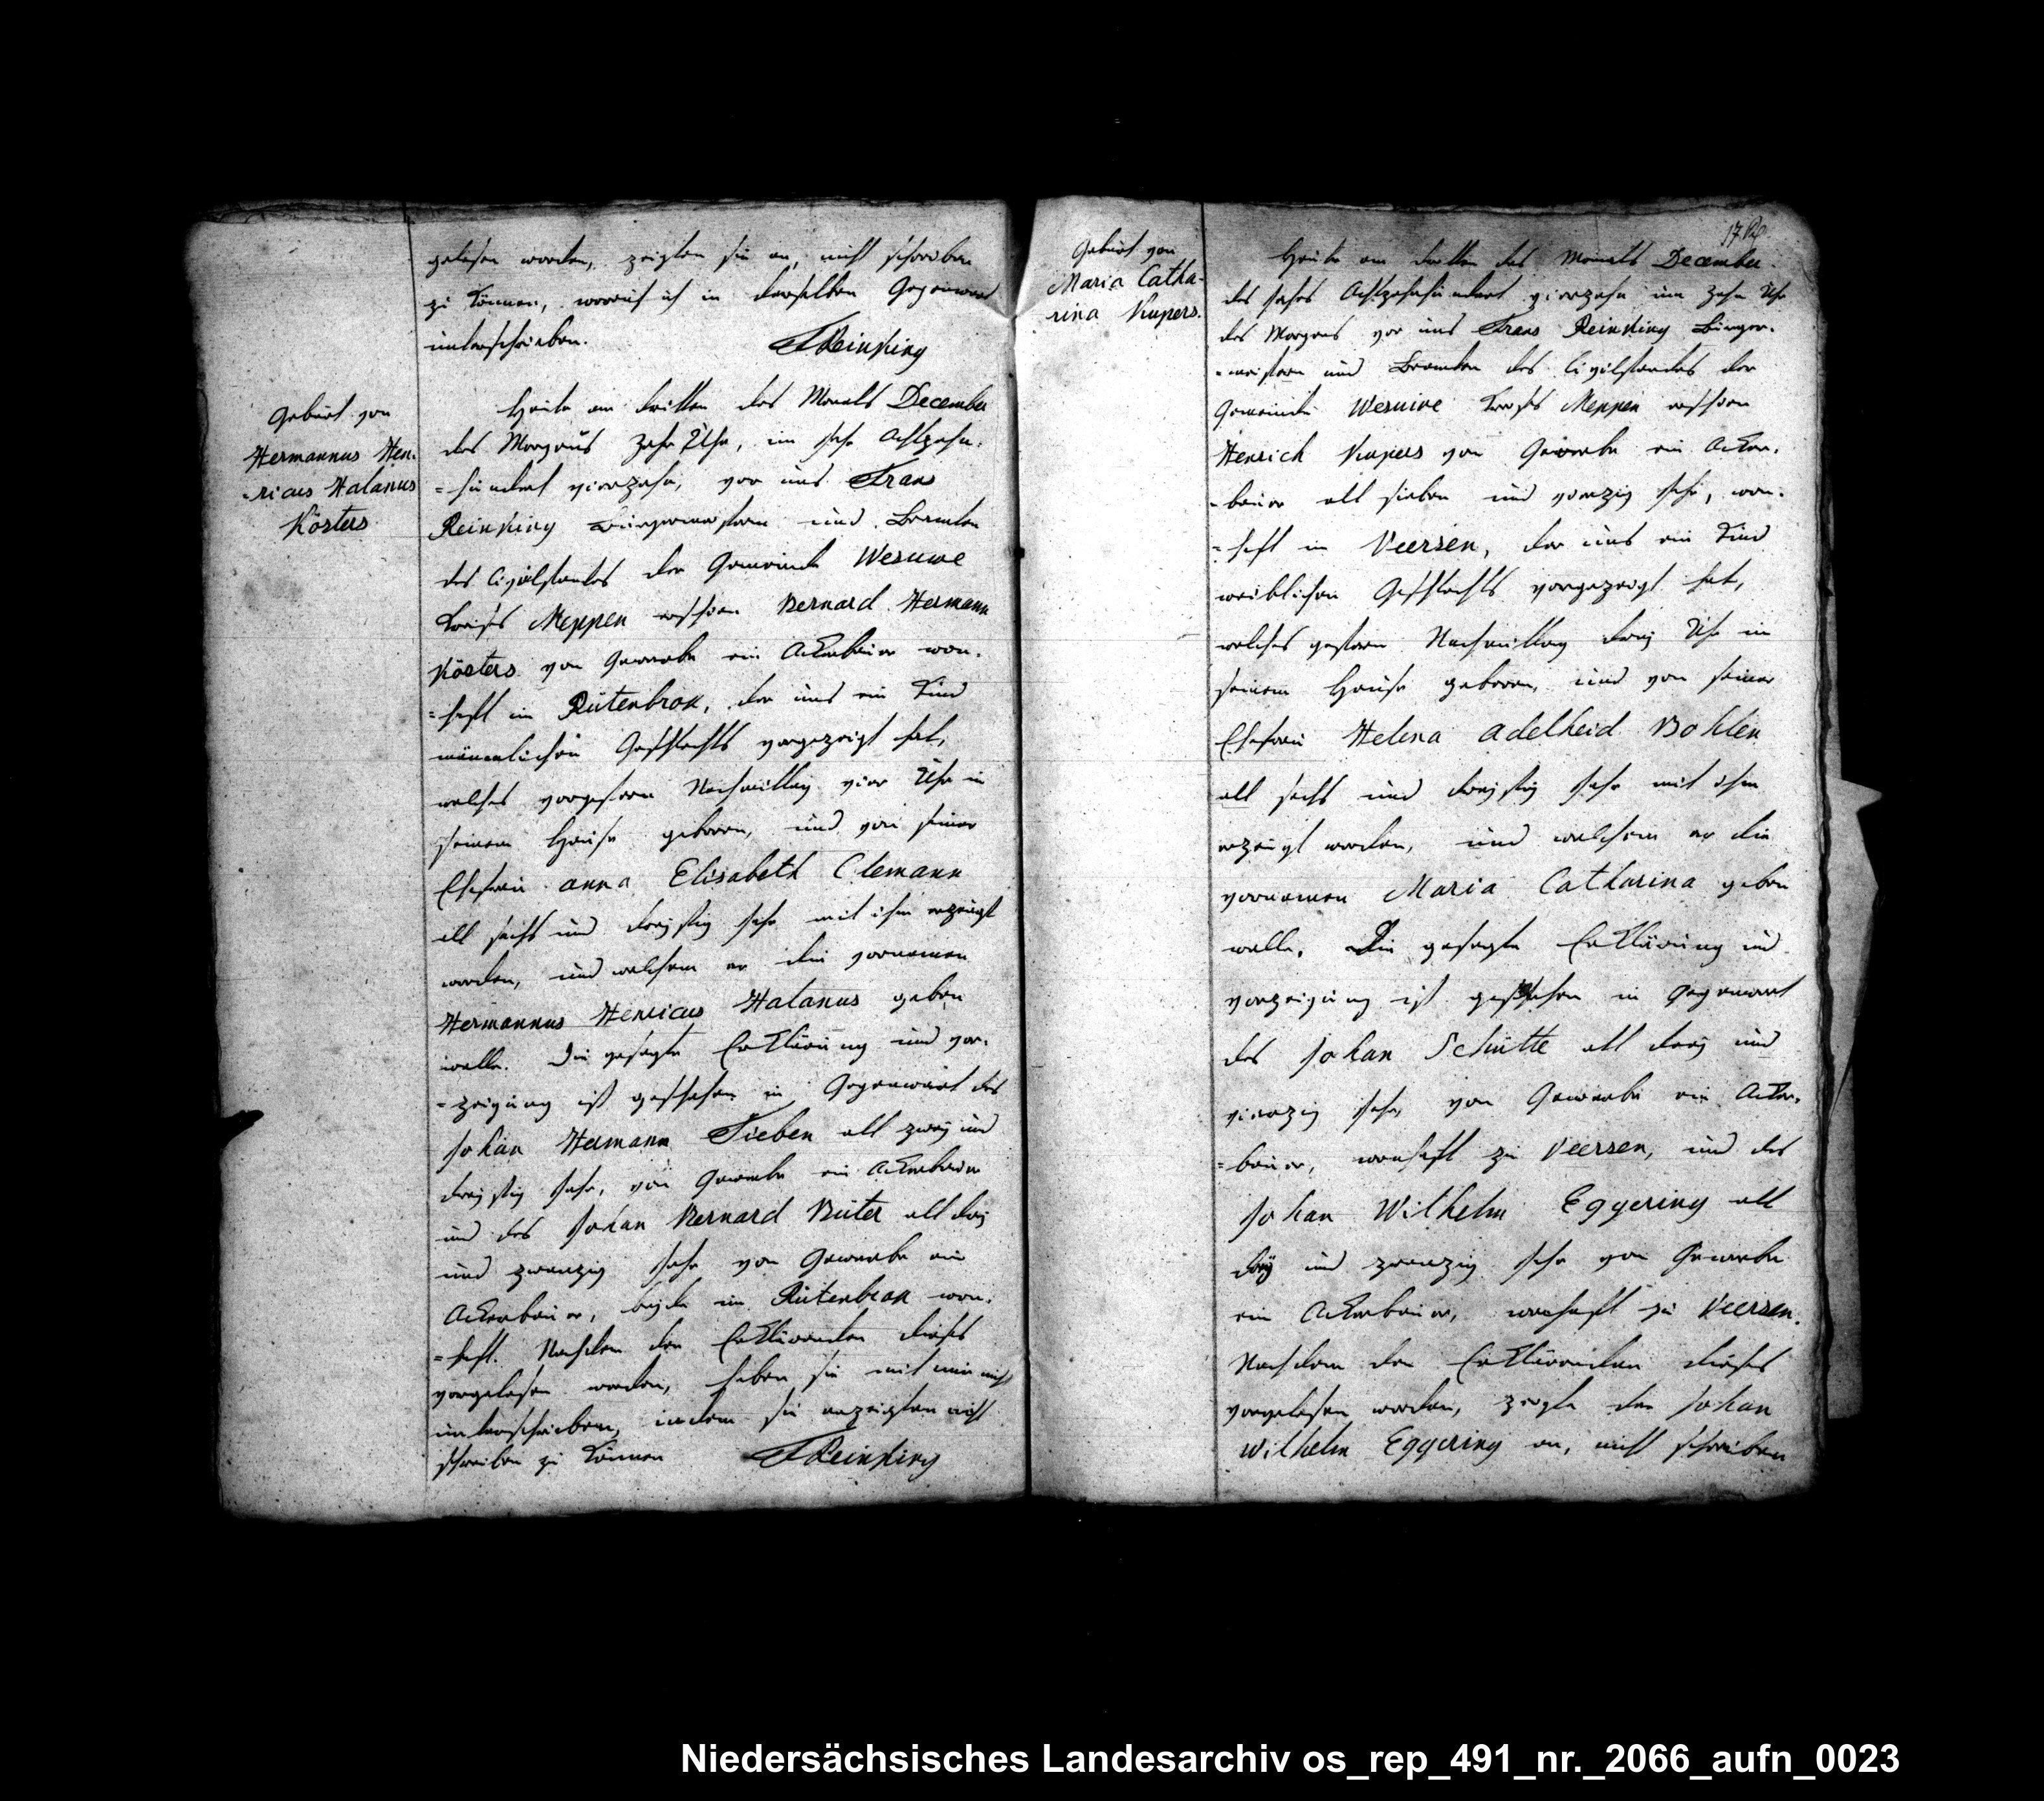 gelesen worden, zeigten sie an, nicht schreiben
zu können, worauf ich in derselben Gegenwart
unterschrieben.
FReinking
Geburt von
Hermannus Hen-
-ricus Halanus
Kösters
Heute am dritten des Monats December
des Morgens Zehn Uhr, im Jahr Achtzehn-
=hundert vierzehn, vor uns Frans
Reinking Bürgermeistern und Beamten
des Civilstandes der Gemeinde Wesuwe
Kreises Meppen erschien Bernard Hermann
Kösters von Gewerbe ein Ackerbauer won-
=haft in Rütenbrok, der uns ein Kind
männlichen Geschlechts vorgezeigt hat,
welches vorgestern Nachmittag vier Uhr in
seinem Hause geboren, und von seiner
Ehefrau anna Elisabeth Clemann
alt sechs und dreystig Jahr mit ihm erzeugt
worden, und welchem er die vornamen
Hermannus Henricus Halanus geben
wolle. Die gesagte Erklärung und vor-
=zeigung ist geschehen in Gegenwart des
Johan Hermann Tieben alt zwey und
dreystig Jahr, von Gewerbe ein Ackerbauer
und des Johan Bernard Büter alt drey
und zwanzig Jahr von Gewerbe ein
Ackerbauer, beyde in Rütenbrok won-
=haft. Nachdem den Erklärenden dieses
vorgelesen worden, haben sie mit mir nicht
unterschrieben, indem sie anzeigten nicht
schreiben zu können FReinking
Geburt von
Maria Catha-
rina Kupers.
Heute am dritten des Monats December
des Jahrs Achtzehnhundert vierzehn um Zehn Uhr
des Morgens vor uns Frans Reinking Bürger-
=meistern und Beamten des Civilstandes der
Gemeinde Wesuwe Kreises Meppen erschien
Henrich Kupers von Gewerbe ein Acker-
=bauer alt sieben und vierzig Jahr, won-
=haft in Veersen, der uns ein Kind
weiblichen Geschlechts vorgezeigt hat,
welches gestern Nachmittag drey Uhr in
seinem Hause geboren, und von seiner
Ehefrau Helena adelheid Bohlen
alt sechs und dreystig Jahr mit ihm
erzeugt worden, und welchem er die
vornamen Maria Catharina geben
wolle. Die gesagte Erklärung und
vorzeigung ist geschehen in Gegenwart
des Johan Schütte alt drey und
vierzig Jahr, von Gewerbe ein Acker-
=bauer, wonhaft zu Veersen, und des
Johan Wilhelm Eggering alt
drey und zwanzig Jahr von Gewerbe
ein Ackerbauer, wonhaft zu Veersen.
Nachdem den Erklärenden dieses
vorgelesen worden, zeigte der Johan
Wilhelm Eggering an, nicht schreiben
Niedersächsisches Landesarchiv os_rep_491_nr._2066_aufn_0023